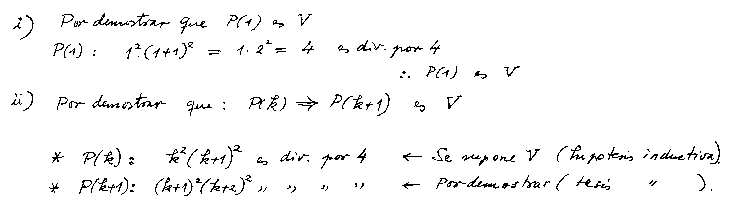 i) Por demostrar que P(1) es V
P(1) : 1²·(1+1)² = 1·2² = 4 es div. por 4
∴ P(1) es V
ii) Por demostrar que : P(k) ⇒ P(k+1) es V
* P(k) : k²(k+1)² es div. por 4 ← Se supone V (hipótesis inductiva)
* P(k+1): (k+1)²(k+2)² " " " " ← Por demostrar (tesis " ).